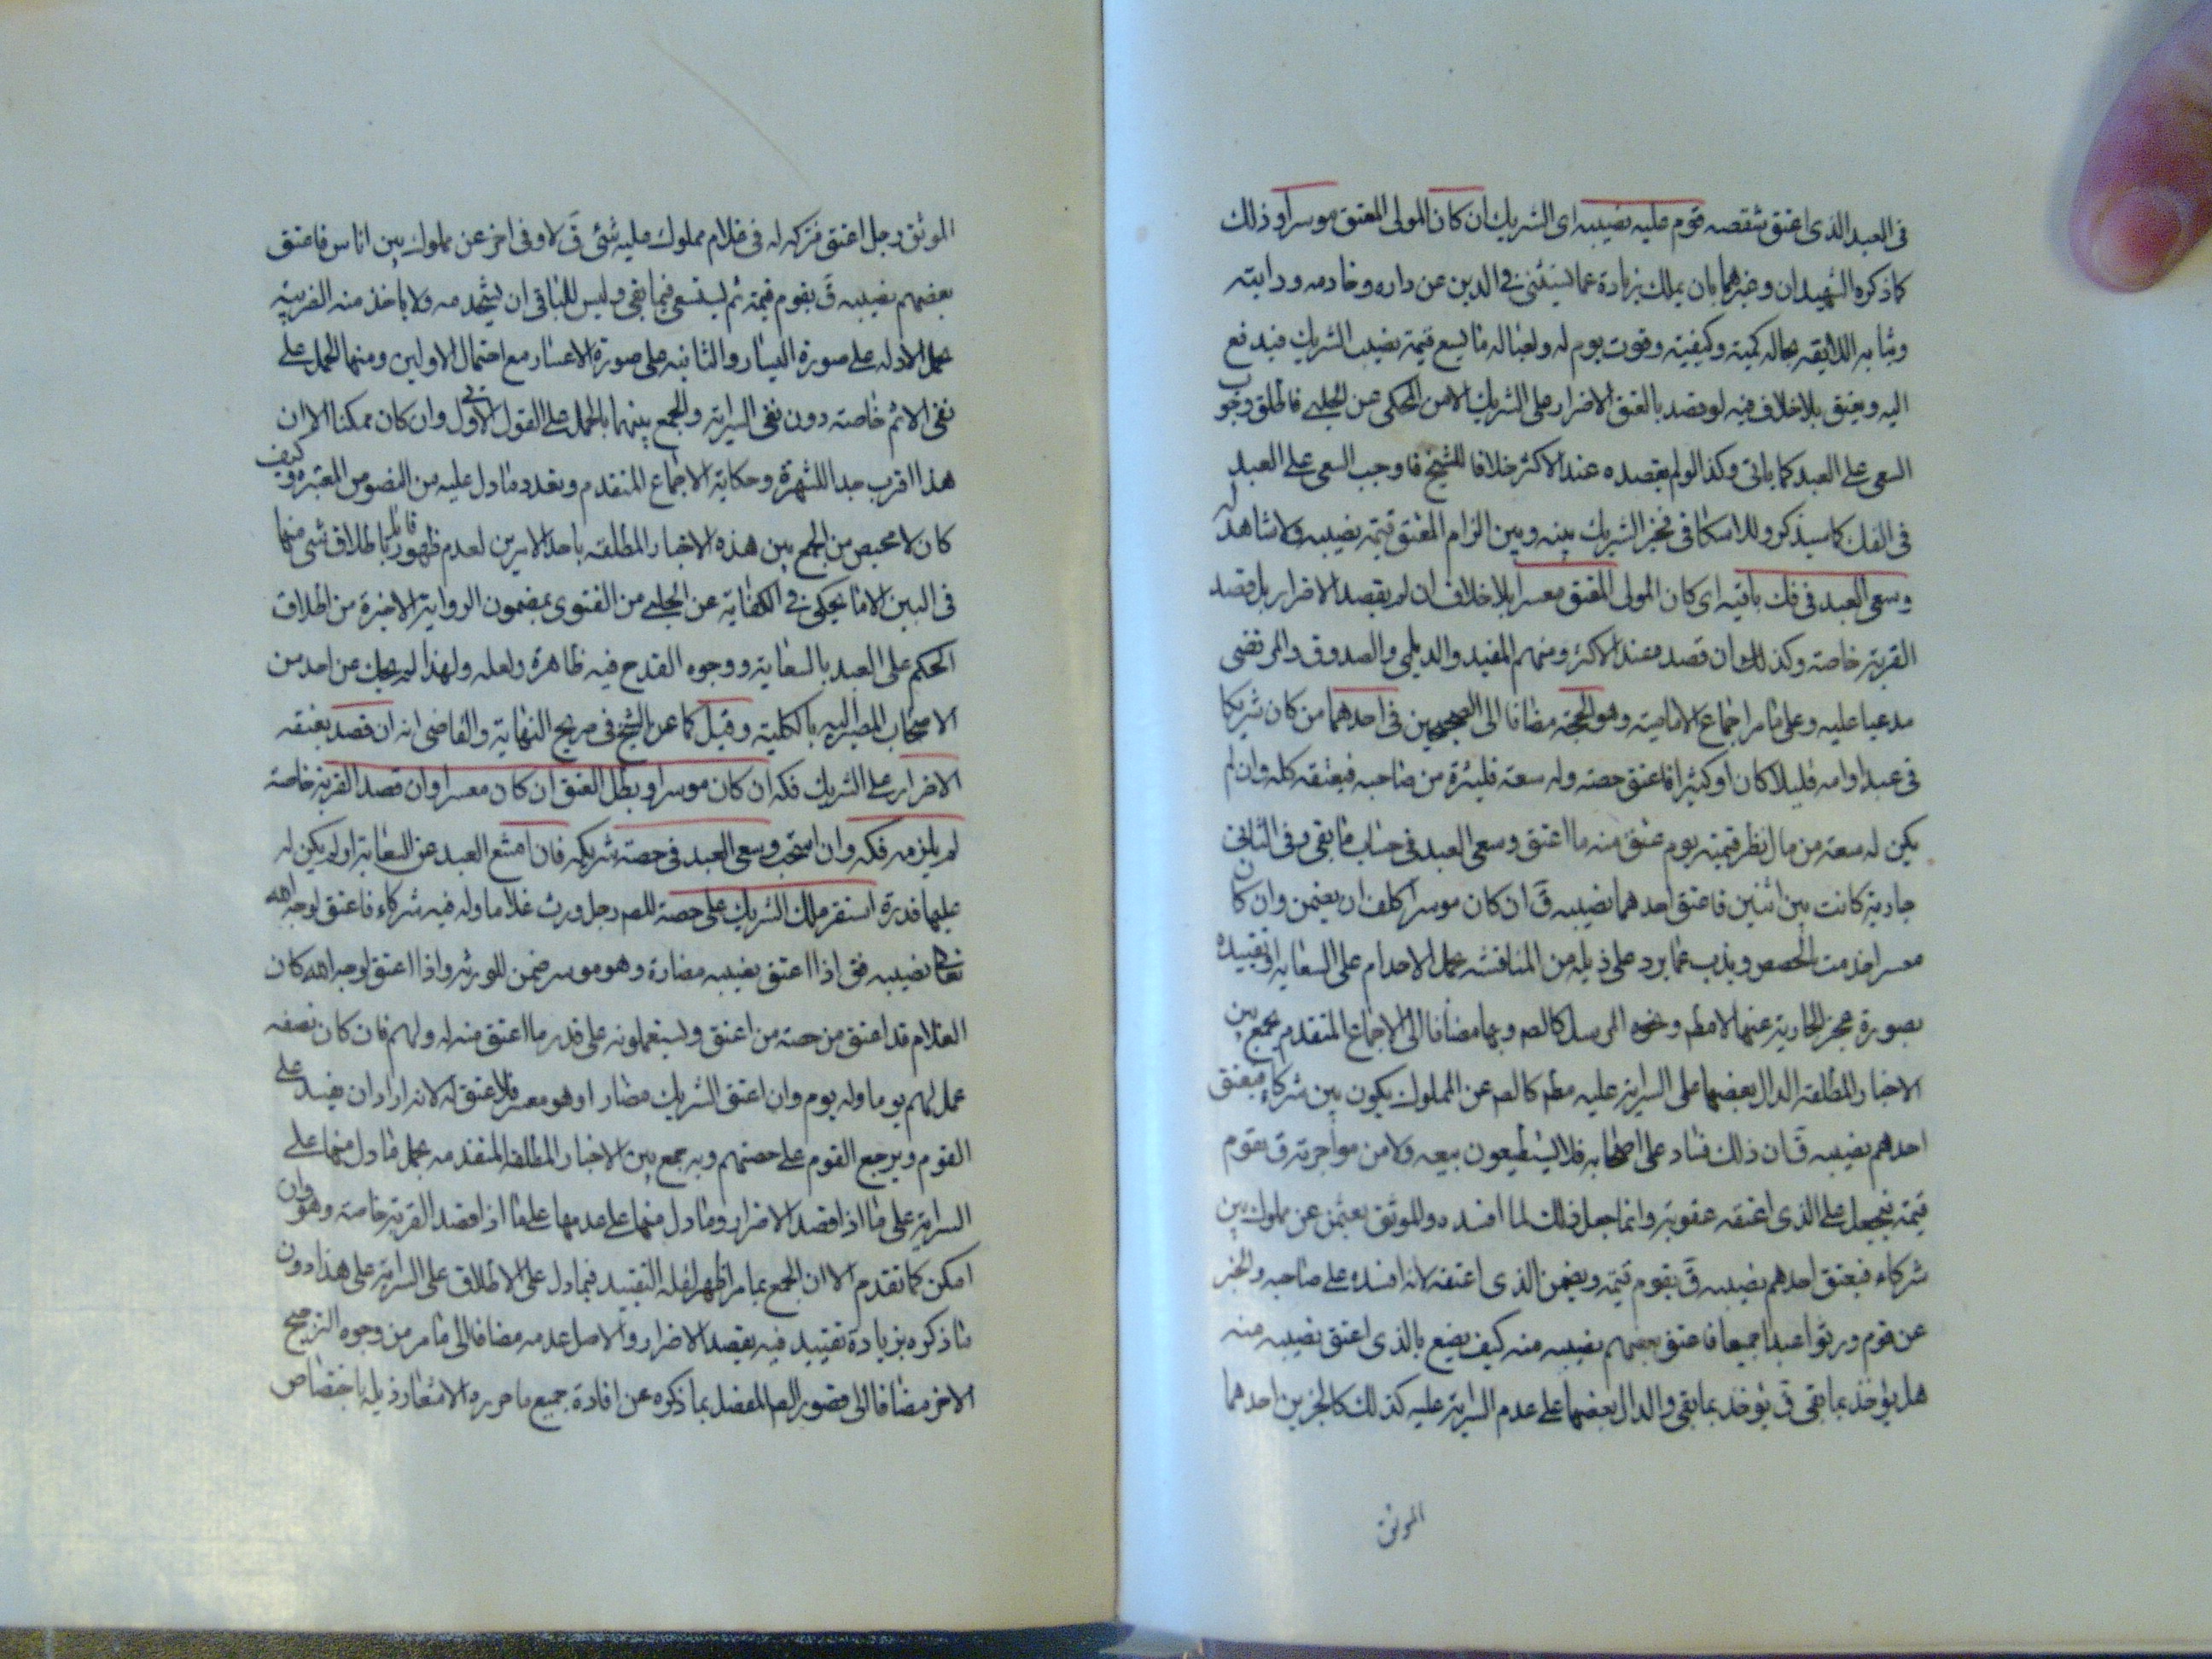 فى العبد الذى اعتق شقصه قوم عليه نصيبه اى الشريك ان كان المولى المعتق موسرا وذلك
كما ذكره الشهيدان وغيرهما بان يملك زيادة عما يستثنى فى الدين عن داره وخادمه ودابته
وثيابه اللايقه بحاله كمية وكيفية وقوت يوم له ولعياله ما يسع قيمة نصيب الشريك فيدفع
اليه ويعتق بلا خلاف فيه لو قصد بالعتق الاضرار على الشريك الا من المحكى عن الحلبى فاطلق وجوب
السعى على العبد كما ياتى وكذا لو لم يقصده عند الاكثر خلافا للشيخ فاوجب السعى على العبد
فى الفك كما سيذكر وللاسكافى فخير الشريك بينه وبين الزام المعتق قيمة نصيبه ولا شاهد له
وسعى العبد فى فك باقيه اى كان المولى المعتق معسرا بلا خلاف ان لم يقصد الاضرار بل قصد
القربة خاصة وكذلك ان قصد عند الاكثر ومنهم المفيد والديلمى والصدوق والمرتضى
مدعيا عليه وعلى ما مر اجماع الامامية وهو الحجة مضافا الى الصحيحين فى احدهما من كان شريكا
فى عبد او امه قليلا كان او كثيرا فاعتق حصته وله سعة فليشتره من صاحبه فيعتقه كله وان لم
يكن له سعة من مال نظر قيمته يوم عتق منه ما اعتق وسعى العبد فى حساب ما بقى وفى الثانى
جارية كانت بين اثنين فاعتق احدهما نصيبه ق ان كان موسرا كلف ان يضمن وان كان
معسرا خدمت بالحصص ويذب عما يرد على ذيله من المناقشه بحمل الاخدام على السعايه او تقييده
بصورة عجز الجارية عنها لا مطم ونحوه المرسل كالصم وبها مضافا الى الاجماع المتقدم يجمع بين
الاخبار المطلقة الدال بعضها على السراية عليه مطم كالصم عن المملوك يكون بين شركاء فيعتق
احدهم نصيبه ق ان ذلك فساد على اصحابه فلا يستطيعون بيعه ولا مواجرته ق يقوم
قيمة فيجعل على الذى اعتقه عقوبة وانما جعل ذلك لما افسده وللموثق بعثمن عن مملوك بين
شركاء فيعتق احدهم نصيبه ق يقوم قيمة ويضمن الذى اعتقه لانه افسده على صاحبه والخبر
عن قوم ورثوا عبدا جميعا فاعتق بعضهم نصيبه منه كيف يصنع بالذى اعتق نصيبه منه
هل يؤخذ بما بقى ق يؤخذ بما بقى والدال بعضها على عدم السراية عليه كذلك كالخبرين احدهما
الموثق
الموثق رجل اعتق شركة له فى غلام مملوك عليه شئ ق لا وفى اخر عن مملوك بين اناس فاعتق
بعضهم نصيبه ق يقوم قيمة ثم يستسعى فيما بقى وليس للباقى ان يستخدمه ولا ياخذ منه الضريبة
بحمل الادله على صورة اليسار والثانيه على صورة الاعسار مع احتمال الاولين ومنها الحمل على
نفى الاثم خاصته دون نفى السراية والجمع بينهما بالحمل على القول الاول وان كان ممكنا الا ان
هذا اقرب جدا للشهرة وحكاية الاجماع المتقدم وتعدد ما دل عليه من النصوص المعتبره وكيف
كان لا محيص من الجمع بين هذه الاخبار المطلقه باحد الامرين لعدم ظهور قائل باطلاق شئ منهما
فى البين الا ما يحكى فى الكفاية عن الحلبى من الفتوى بمضمون الرواية الاخيرة من اطلاق
الحكم على العبد بالسعاية ووجوه القدح فيه ظاهرة ولعله ولهذا لم يحك عن احد من
الاصحاب المصير اليه بالكلية وقيل كما عن الشيخ فى صريح النهاية والقاضى انه ان قصد بعتقه
الاضرار على الشريك فكه ان كان موسرا وبطل العتق ان كان معسرا وان قصد القربة خاصة
لم يلزمه فكه وان استحب وسعى العبد فى حصة شريكه فان امتنع العبد عن السعاية او لم يكن له
عليها قدرة استقر ملك الشريك على حصته للصم رجل ورث غلاما وله فيه شركاء فاعتق لوجه الله
تعالى نصيبه فق اذا اعتق نصيبه مضارة وهو موسر ضمن للورثه واذا اعتق لوجه الله كان
الغلام قد اعتق من حصة من اعتق ويستعملونه على قدر ما اعتق منه له ولهم فان كان نصفه
عمل لهم يوما وله يوم وان اعتق الشريك مضارا وهو معسر فلا عتق له لانه اراد ان يفسد على
القوم ويرجع القوم على حصتهم وبه جمع بين الاخبار المطلقه المتقدمه بحمل ما دل منها على
السراية على ما اذا قصد الاضرار وما دل منها على عدمها على ما اذا قصد القربة خاصته وهو وان
امكن كما تقدم الا ان الجمع بما مر اظهر لقله التقييد فيما دل على الاطلاق على السراية على هذا دون
ما ذكره بزيادة تقييد فيه بقصد الاضرار والاصل عدمه مضافا الى ما مر من وجوه الترجيح
الاخر مضافا الى قصور الصم المفصل بما ذكره عن افادة جميع ما حرره الاشعار ذيله باختصاص